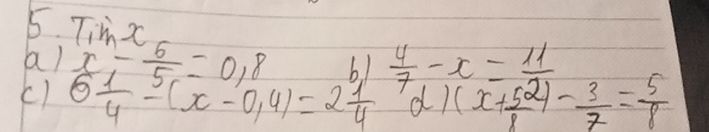 5. Tìm x
a) x - 6/5 = 0,8 b) 4/7 - x = 11/2
c) 6 1/4 - (x - 0,4) = 2 1/4 d) (x + 5/8) - 3/7 = 5/8